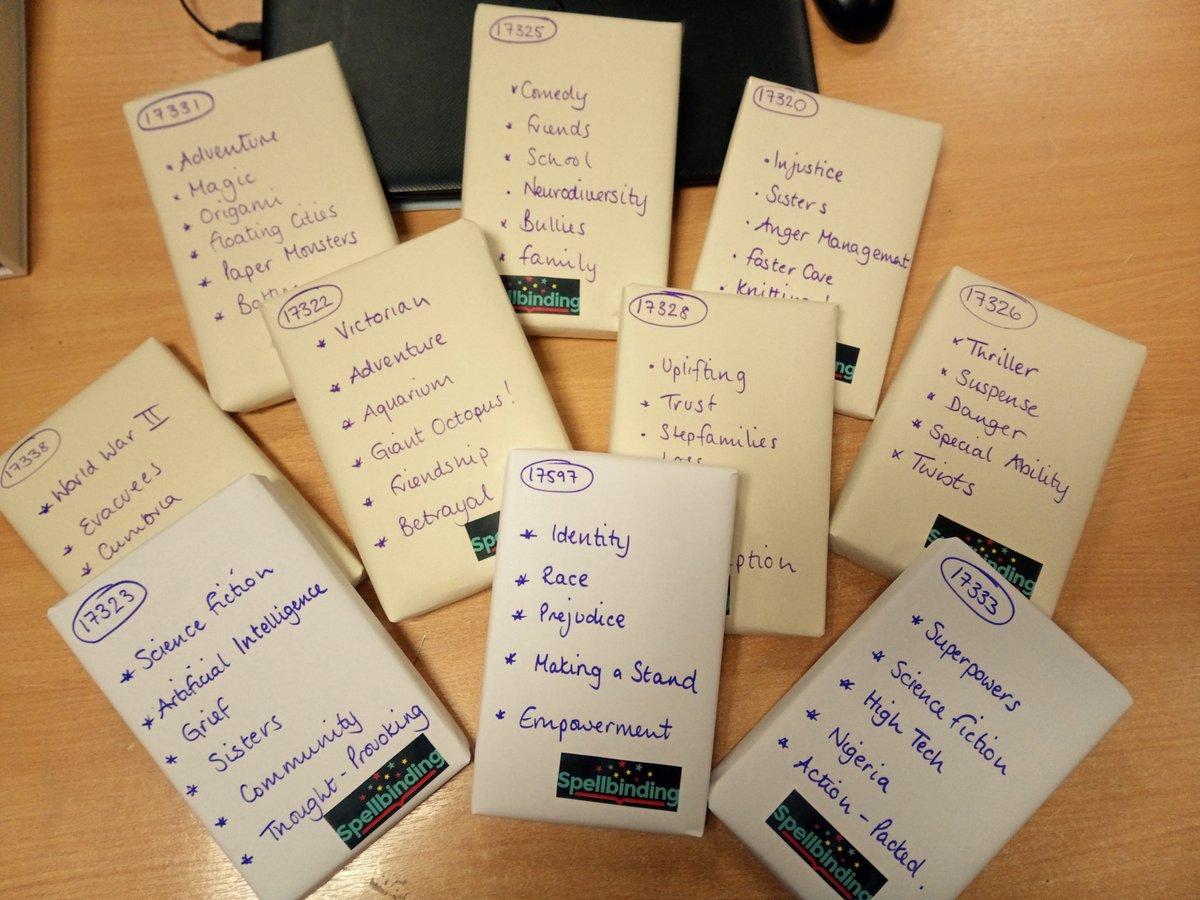 17331
* Adventure
* Magic
* Origami
* Floating Cities
* Paper Monsters
*
17325
* Comedy
* Friends
* School
• Neurodiversity
* Bullies
* Family
llbinding
17320
• Injustice
• Sisters
• Anger Management
• Foster Care
• Knitting!
ng
17338
* World War II
* Evacuees
* Cumbria
17322
* Victorian
* Adventure
* Aquarium
* Giant Octopus!
* Friendship
* Betrayal
Spe
17328
• Uplifting
* Trust
• Stepfamilies
ption
17326
* Thriller
* Suspense
* Danger
* Special Ability
* Twists
binding
17323
* Science Fiction
* Artificial Intelligence
* Grief
* Sisters
* Community
* Thought-Provoking
Spellbinding
17597
* Identity
* Race
* Prejudice
* Making a Stand
* Empowerment
Spellbinding
17333
* Superpowers
* Science Fiction
* High Tech
* Nigeria
* Action-Packed.
Spellbinding